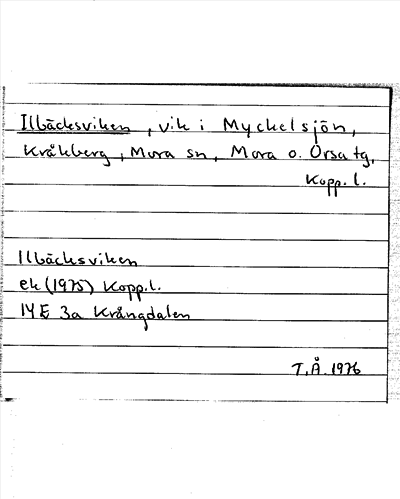 Ilbäcksviken, vik i Myckelsjön,
Kråkberg, Mora sn, Mora o. Orsa tg,
Kopp. l.
Ilbäcksviken
ek (1975) Kopp.l.
14E 3a Krångdalen
T.Å. 1976